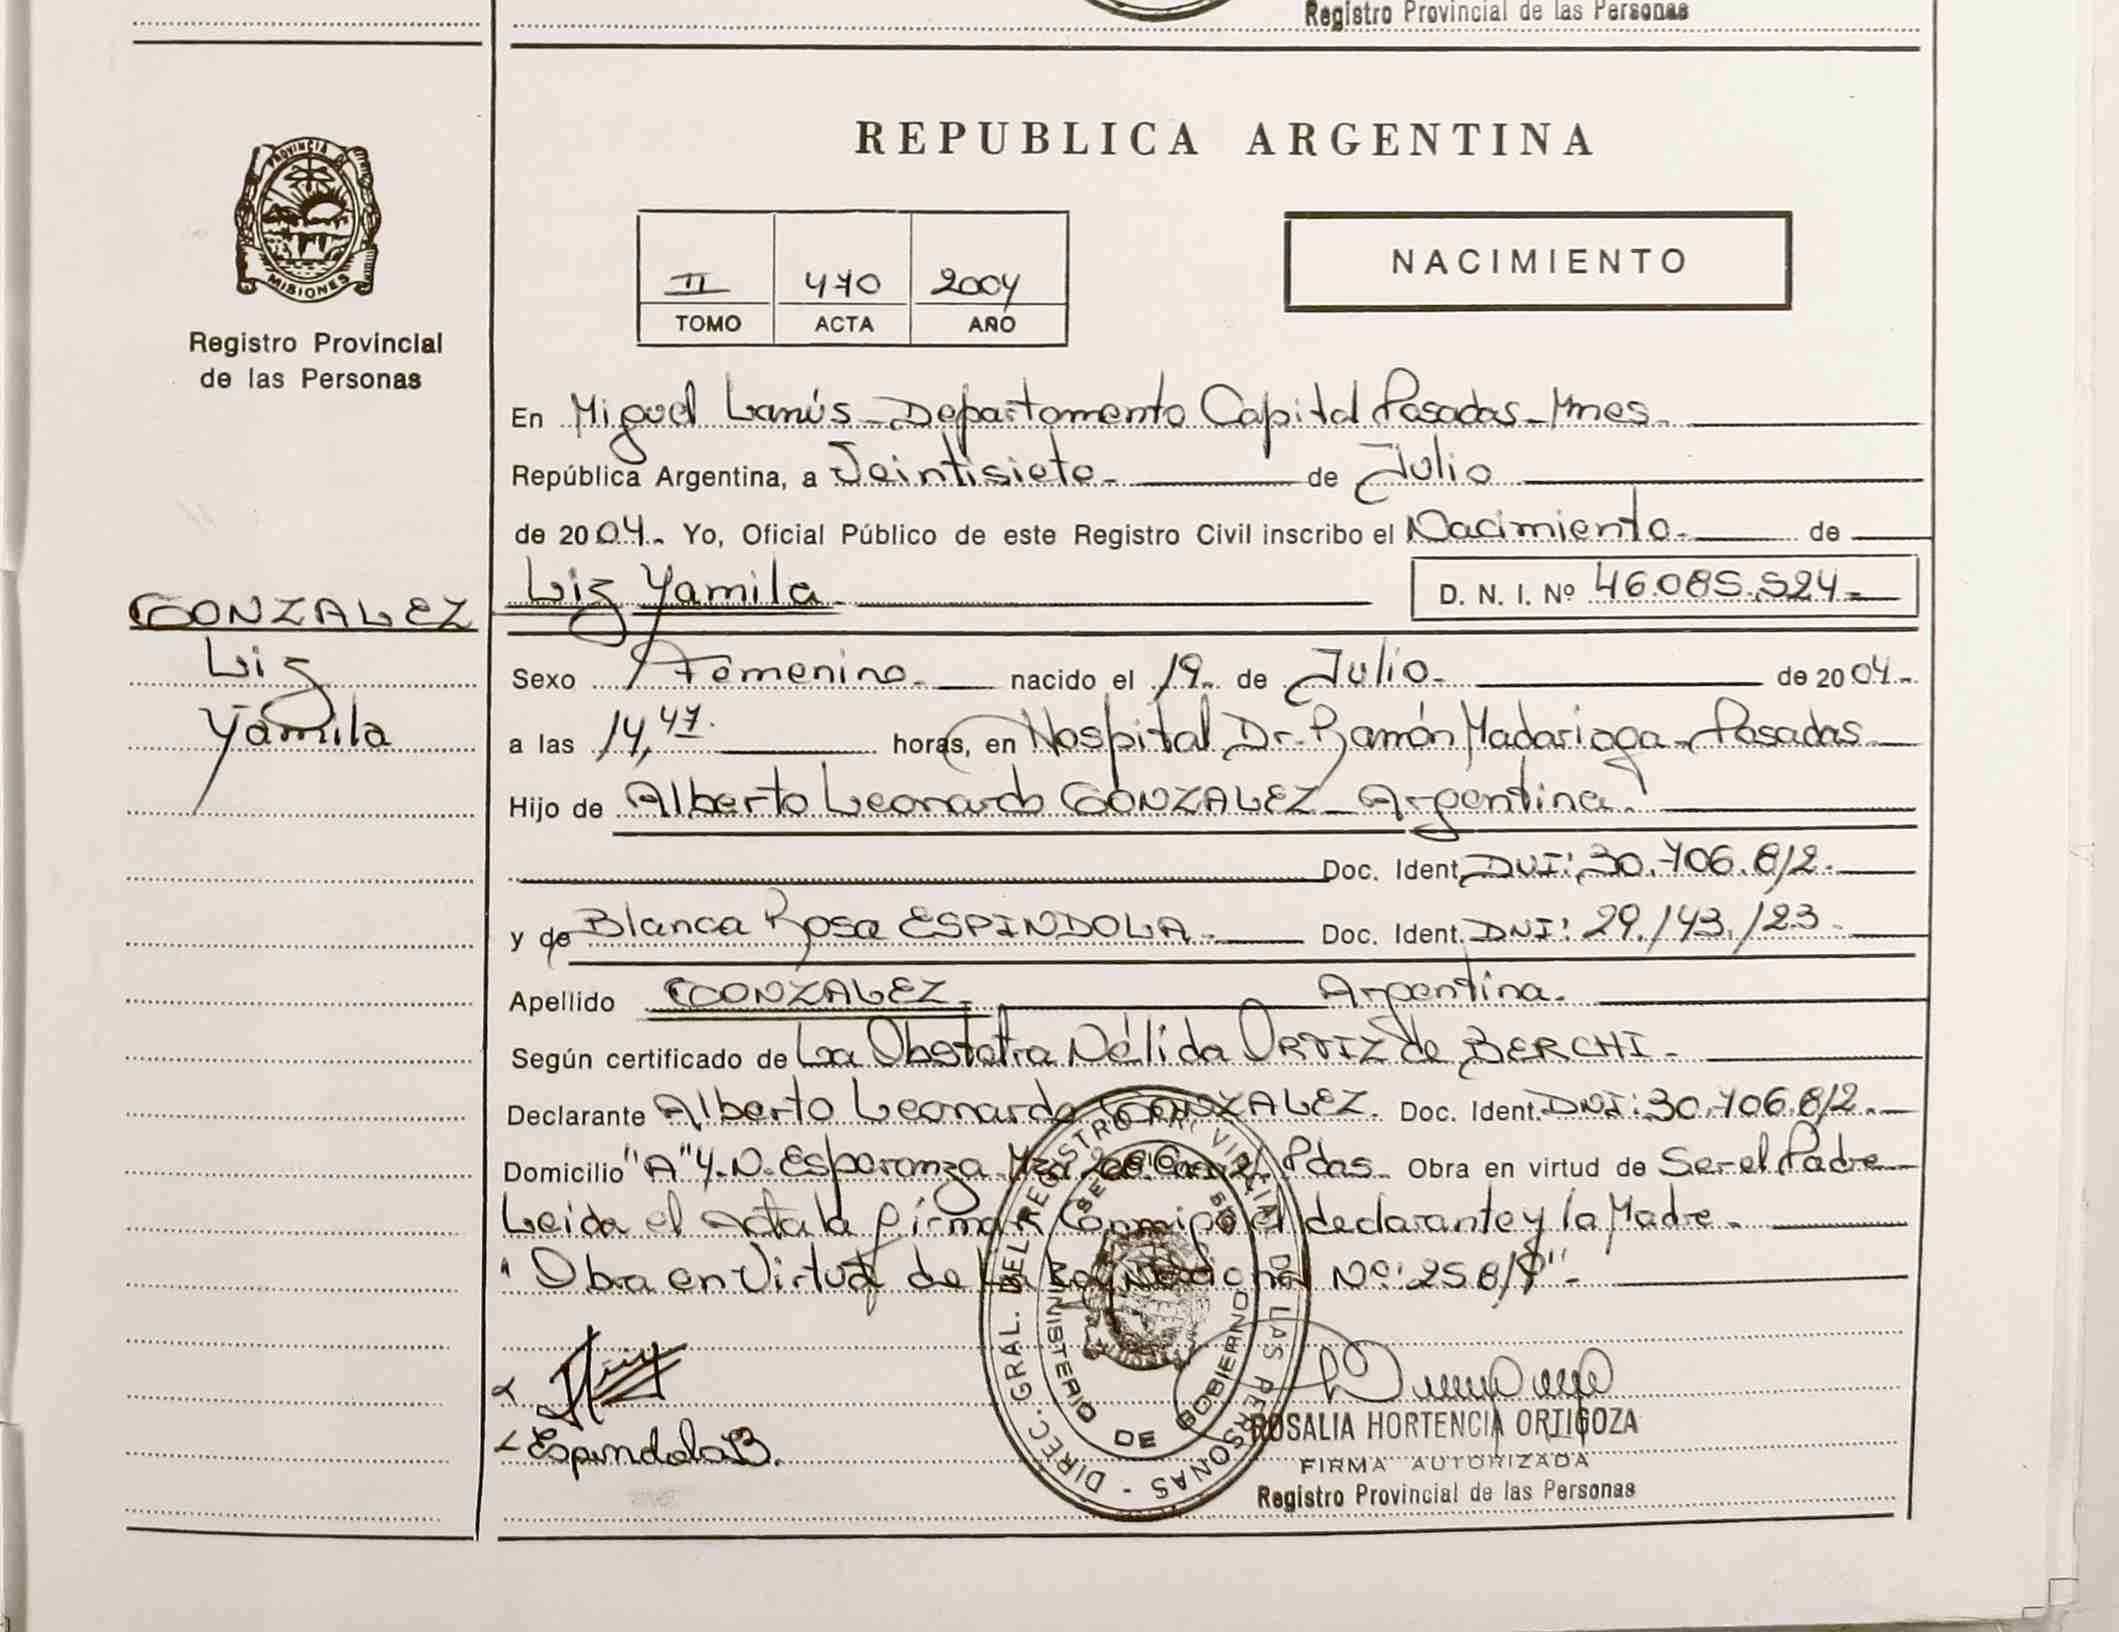 Registro Provincial de las Personas
PROVINCIA DE
MISIONES
Registro Provincial
de las Personas
REPUBLICA ARGENTINA
II 470 2004
TOMO ACTA AÑO
NACIMIENTO
En Miguel Lanús - Departamento Capital Posadas - Mnes.
República Argentina, a Veintisiete - de Julio
de 2004.- Yo, Oficial Público de este Registro Civil inscribo el Nacimiento.- de
GONZALEZ
Liz
Yamila
Liz Yamila. D. N. I. Nº 46.085.524-
Sexo Femenino.- nacido el 19.- de Julio.- de 2004.-
a las 14,47. horas, en Hospital Dr. Ramón Madariaga - Posadas
Hijo de Alberto Leonardo GONZALEZ - Argentina
Doc. Ident. DNI: 30.706.812.-
y de Blanca Rosa ESPINDOLA.- Doc. Ident. DNI: 29.143.123.-
Apellido GONZALEZ.- Argentina.
Según certificado de La Obstetra Nélida ORTIZ de BERCHI.-
Declarante Alberto Leonardo GONZALEZ. Doc. Ident. DNI: 30.706.812.-
Domicilio "A" 4. N. Esperanza Mza Casa Pdas. Obra en virtud de Ser el Padre
Leida el acta la firman Conmigo el declarante y la Madre.-
" Obra en Virtud de la N°: 258/9"-
Espindola B.
DIREC. GRAL. DEL REGISTRO PROVINCIAL DE LAS PERSONAS -
MINISTERIO DE GOBIERNO
ROSALIA HORTENCIA ORTIGOZA
FIRMA AUTORIZADA
Registro Provincial de las Personas